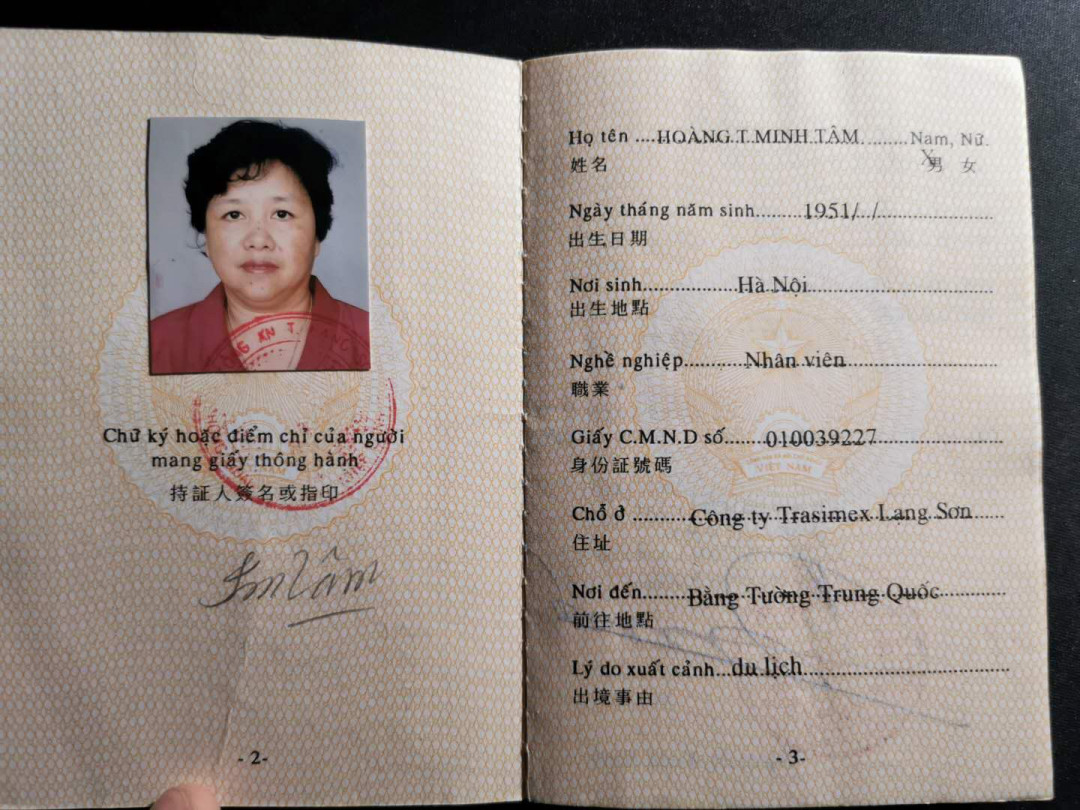 Chữ ký hoặc điểm chỉ của người
mang giấy thông hành
持証人簽名或指印
Tâm
- 2-
Họ tên ....HOÀNG T MINH TÂM........Nam, Nữ.
姓名 X男 女
Ngày tháng năm sinh........1951/ /........
出生日期
Nơi sinh........Hà Nội........
出生地點
Nghề nghiệp........Nhân viên........
職業
Giấy C.M.N.D số......010039227........
身份証號碼
Chỗ ở ........Công ty Trasimex Lang Sơn....
住址
Nơi đến......Bằng Tường Trung Quốc........
前往地點
Lý do xuất cảnh...du lịch........
出境事由
VIỆT NAM
- 3-